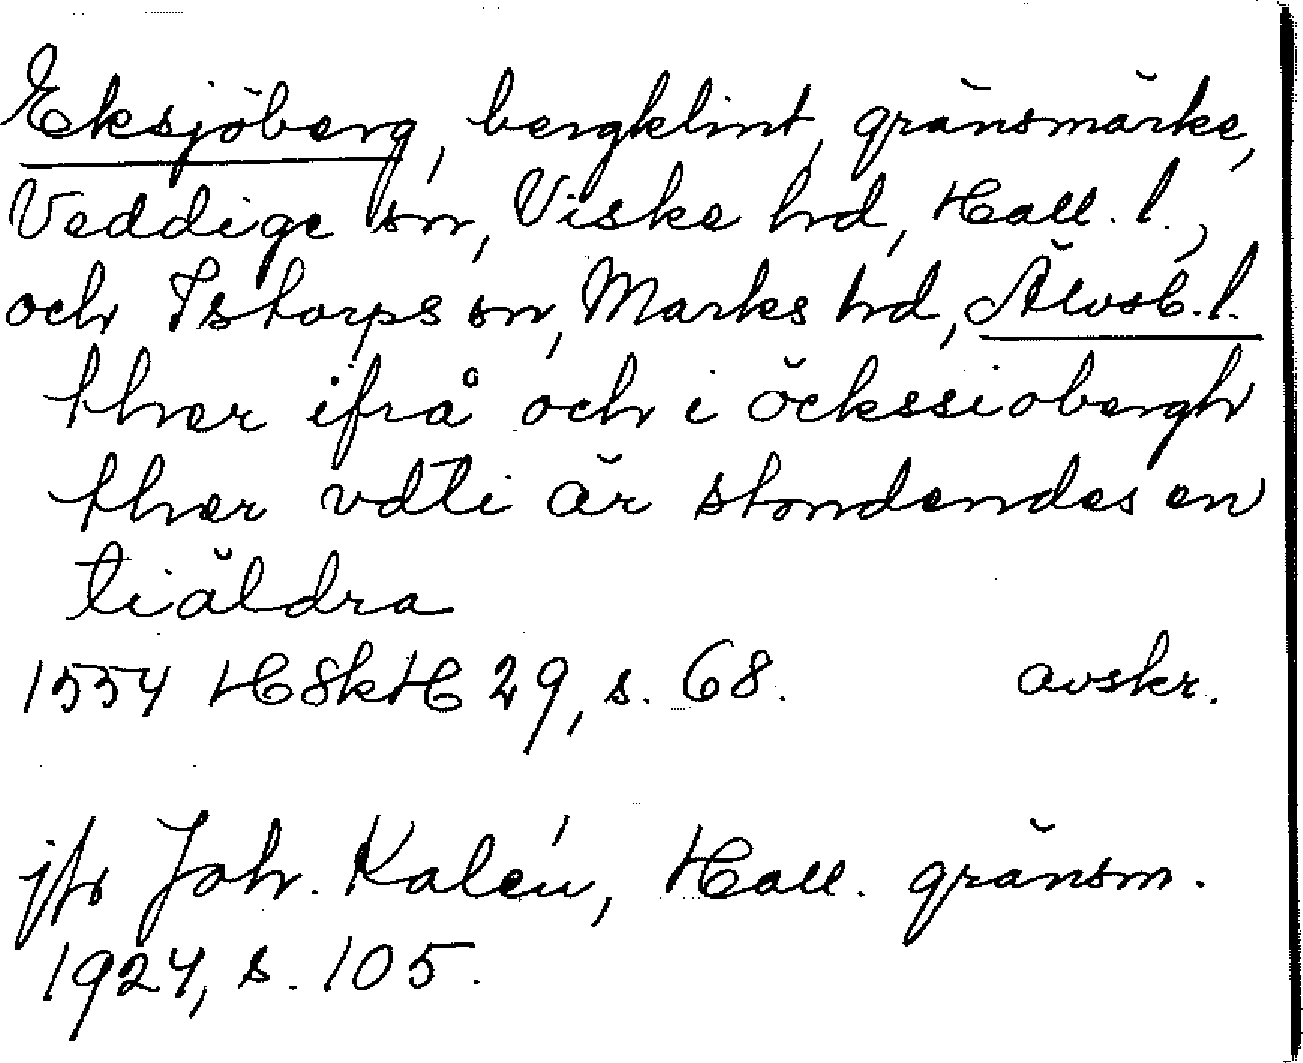 Eksjöberg, bergklint, gränsmärke,
Veddige sn, Viske hd, Hall. l.,
och Istorps sn, Marks hd, Älvsb. l.
ther ifrå och i öckssiobergh
ther vdti är stondendes en
tiäldra
1554 HSkH 29, s. 68. avskr.
jfr Joh. Kalén, Hall. gränsm.
1924, s. 105.